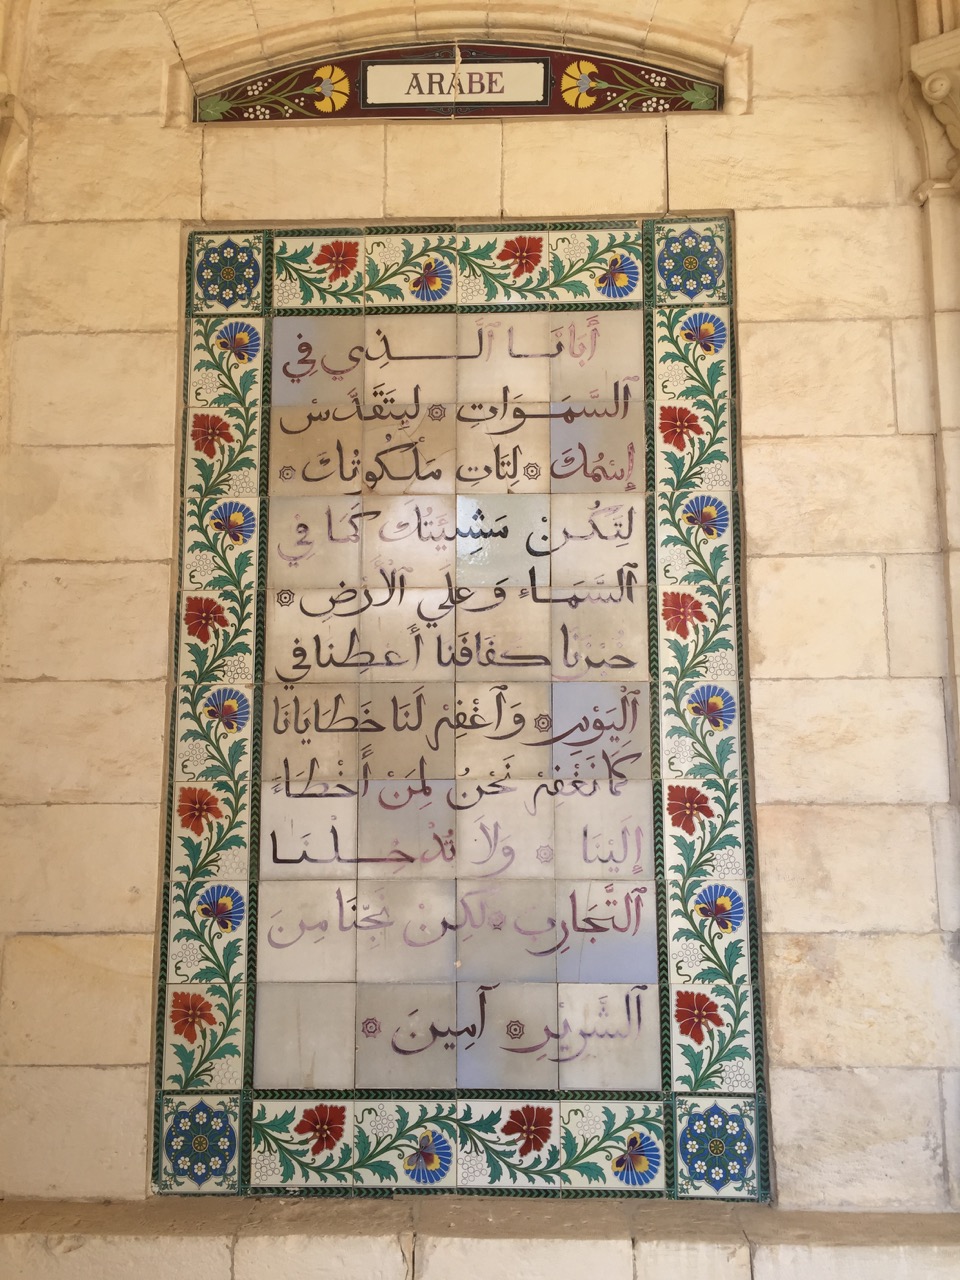 ARABE
أَبَانَا ٱلَّذِي فِي
ٱلسَّمَوَاتِ ۞ لِيَتَقَدَّسْ
إِسْمُكَ ۞ لِتَاتِ مَلَكُوتُكَ ۞
لِتَكُنْ مَشِيئَتُكَ كَمَا فِي
ٱلسَّمَاءِ وَعَلَي ٱلْأَرْضِ ۞
خُبْزَنَا كَفَافَنَا أَعطِنا في
ٱلْيَوْمِ ۞ وَٱغْفِرْ لَنَا خَطَايَانَا
كَمَا نَغْفِرْ نَحْنُ لِمَنْ أَخْطَاءَ
إِلَيْنَا ۞ وَلاَ تُدْخِلْنَا
ٱلتَّجَارِبِ ۞ لَكِنْ نَجِّنَا مِنَ
ٱلشَّرِيْرِ ۞ آمِينَ ۞